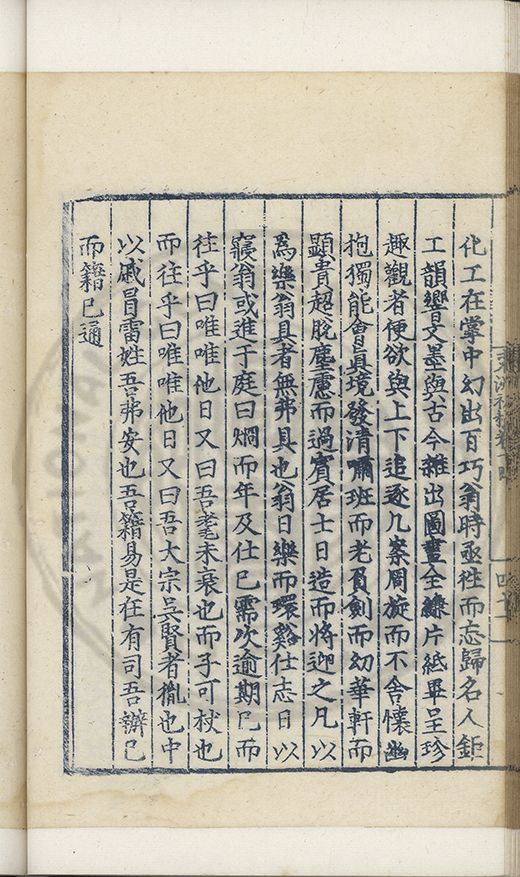 化工在掌中幻出百巧翁時亟徃而忘歸名人鉅
工韻響文墨與古今雜出圖畫全縑片紙畢呈珍
趣觀者便欲與上下追逐几案周旋而不舍懷幽
抱獨能會真境發清嘯班而老頁劍而幼華軒而
顯貴超脫塵慮而過賓居士日造而將迎之凡以
為樂翁具者無弗具也翁日樂而環谿仕志日以
寢翁或進于庭曰爓而年及仕已需次逾期已而
徃乎曰唯唯他日又曰吾耄未衰也而子可杖也
而往乎曰唯唯他日又曰吾大宗吳賢者胤也中
以戚冒雷姓吾弗安也吾籍易是在有司吾辦已
而籍已通